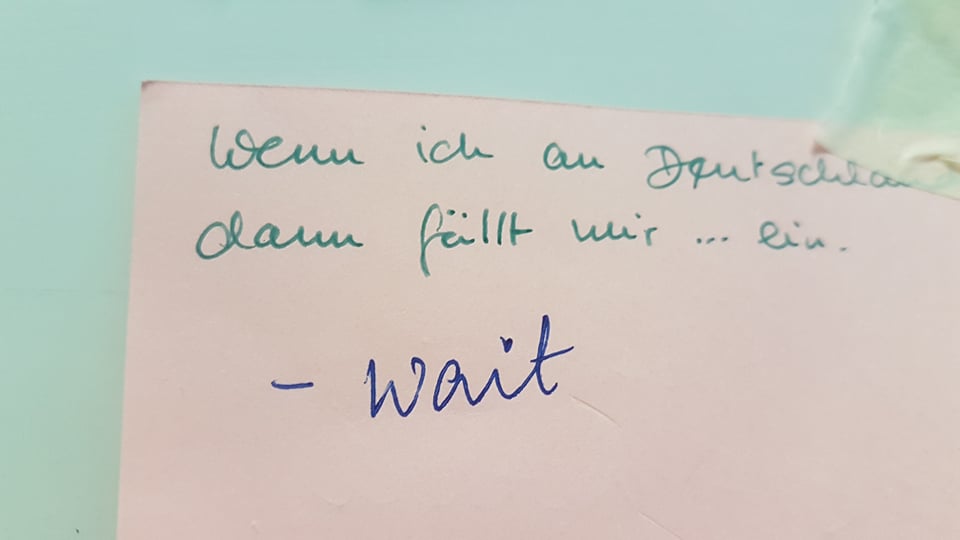 Wenn ich an Deutschla
dann fällt mir ... ein.
- wait